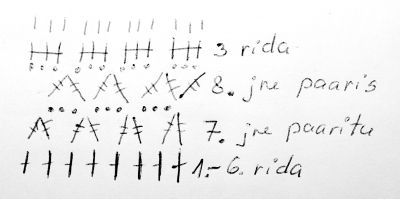 3 rida
8. jne paaris
7. jne paaritu
1.-6. rida